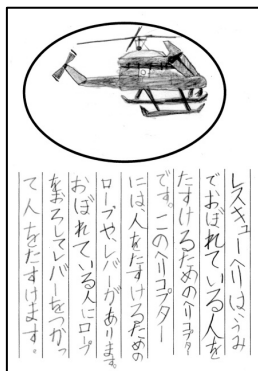 レスキューヘリは、うみ
でおぼれている人を
たすけるためのヘリコプター
です。このヘリコプター
には人をたすけるための
ロープや、レバーがあります。
おぼれている人にロープ
をおろしてレバーをつかっ
て人をたすけます。